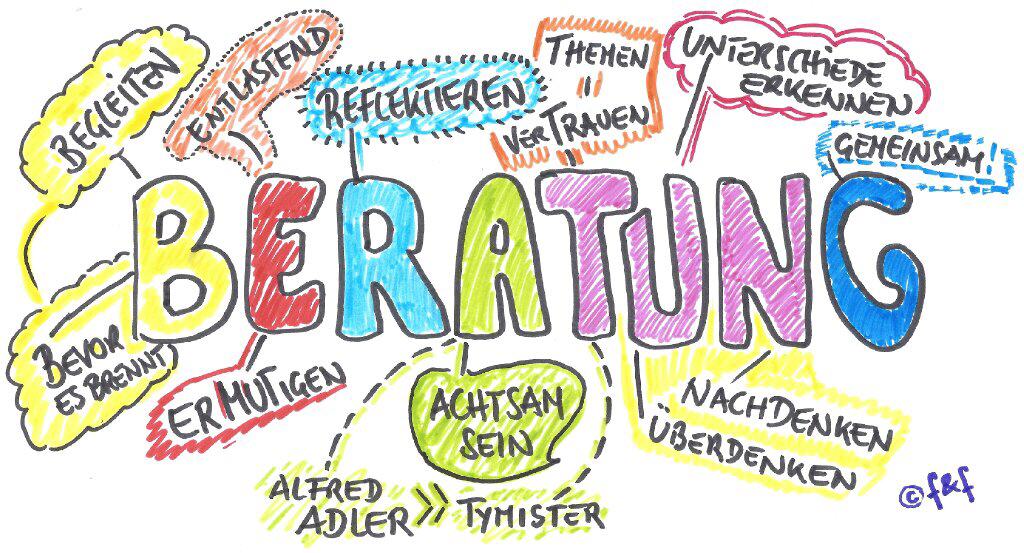 BEGLEITEN
ENTLASTEND
REFLEKTIEREN
THEMEN
VERTRAUEN
UNTERSCHIEDE
ERKENNEN
GEMEINSAM!
BERATUNG
BEVOR
ES BRENNT
ERMUTIGEN
ACHTSAM
SEIN
NACHDENKEN
ÜBERDENKEN
ALFRED
ADLER >> TYMISTER
© f&f